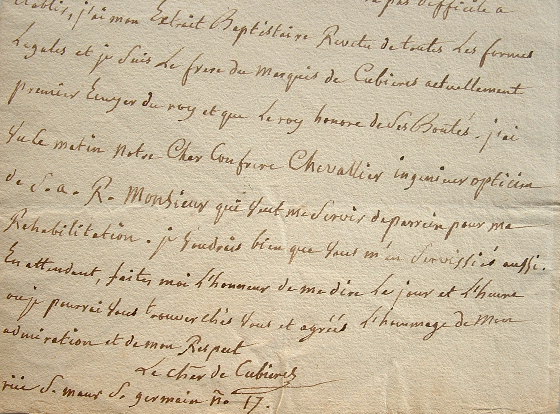 pas difficile a
établir, j'ai mon Extrait Baptistaire Revetu de toutes Les formes
Legales et je suis Le frere du Marquis de Cubieres actuellement
premier Ecuyer du roy et que Le roy honore de ses Bontés. j'ai
Vu le matin notre Cher Confrere Chevallier ingenieur opticien
de S. a. R. Monsieur qui veut me servir de parrein pour ma
Rehabilitation. je Voudrois bien que Vous m'en Servissiés aussi.
En attendant, faites moi L'honneur de me dire Le jour et L'heure
où je pourrai Vous trouver chés Vous et agreés L'hommage de Mon
admiration et de mon Respect
Le cher de Cubieres
rüe S. maur S. germain no 17.